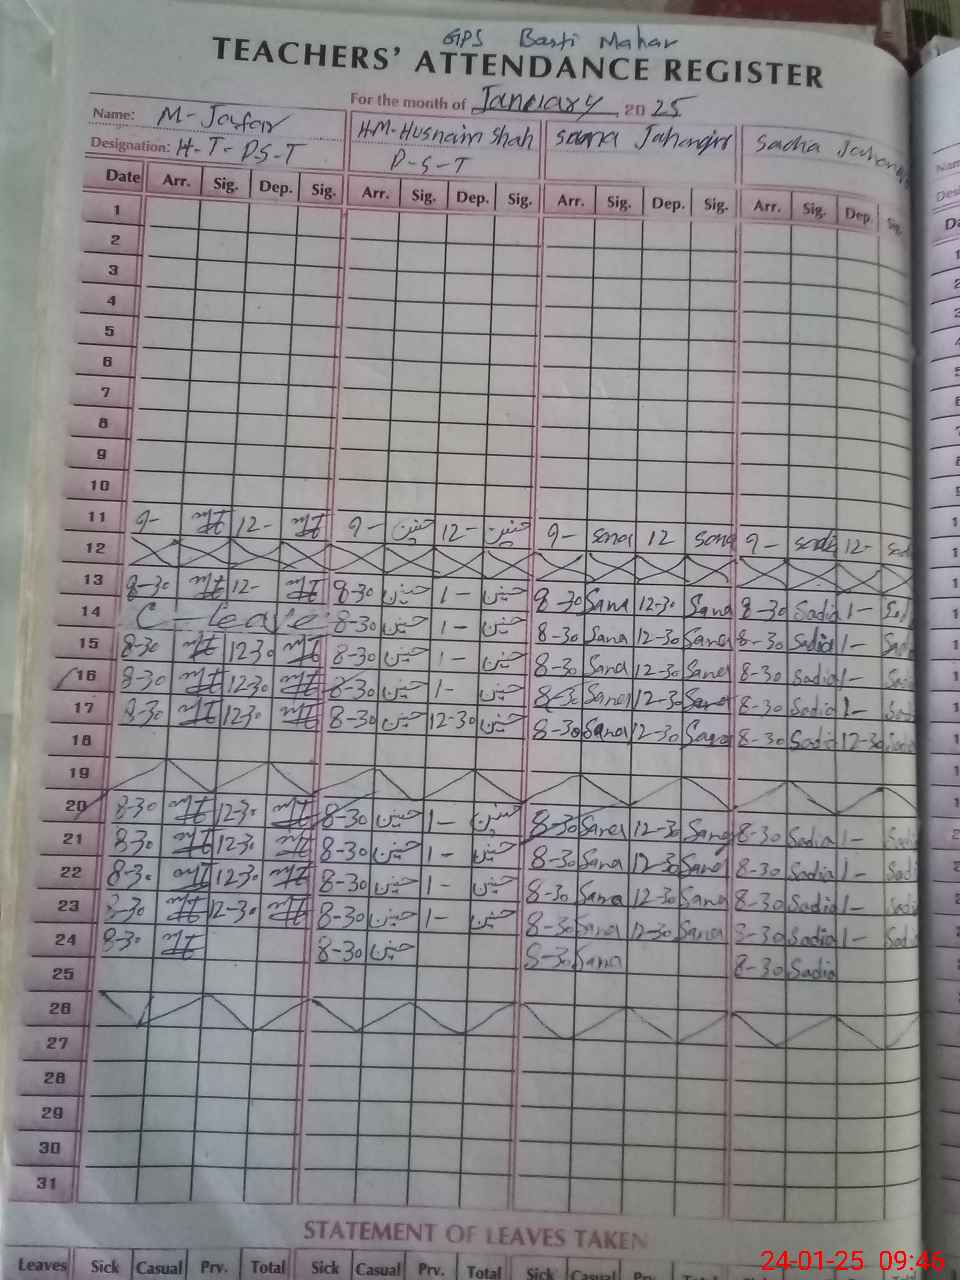 GPS Basti Mahar
TEACHERS' ATTENDANCE REGISTER
For the month of January 2025
Name: M-Jafar H.M-Husnain Shah Sana Jahangir Sadia Jahangir
Designation: H-T-P-S-T P-S-T
Date Arr. Sig. Dep. Sig. Arr. Sig. Dep. Sig. Arr. Sig. Dep. Sig. Arr. Sig. Dep. Sig.
1
2
3
4
5
6
7
8
9
10
11 9- 12- 9- حسنین 12- حسنین 9- Sana 12 Sana 9- Sadia 12- Sadi
12
13 8-30 12- 8-30 حسنین 1- حسنین 8-30 Sana 12-30 Sana 8-30 Sadia 1- Sad
14 C-Leave 8-30 حسنین 1- حسنین 8-30 Sana 12-30 Sana 8-30 Sadia 1- Sad
15 8-30 12-30 8-30 حسنین 1- حسنین 8-30 Sana 12-30 Sana 8-30 Sadia 1- Sad
16 8-30 12-30 8-30 حسنین 1- حسنین 8-30 Sana 12-30 Sana 8-30 Sadia 1- Sad
17 8-30 12-30 8-30 حسنین 12-30 حسنین 8-30 Sana 12-30 Sana 8-30 Sadia 12-30 Sadia
18
19
20 8-30 12-30 8-30 حسنین 1- حسنین 8-30 Sana 12-30 Sana 8-30 Sadia 1- Sadi
21 8-30 12-30 8-30 حسنین 1- حسنین 8-30 Sana 12-30 Sana 8-30 Sadia 1- Sadi
22 8-30 12-30 8-30 حسنین 1- حسنین 8-30 Sana 12-30 Sana 8-30 Sadia 1- Sadi
23 8-30 12-30 8-30 حسنین 1- حسنین 8-30 Sana 12-30 Sana 8-30 Sadia 1- Sad
24 8-30 8-30 حسنین 8-30 Sana 8-30 Sadia
25
26
27
28
29
30
31
STATEMENT OF LEAVES TAKEN
Leaves Sick Casual Prv. Total Sick Casual Prv. Total Sick Casual Prv. Total Sick
24-01-25 09:46